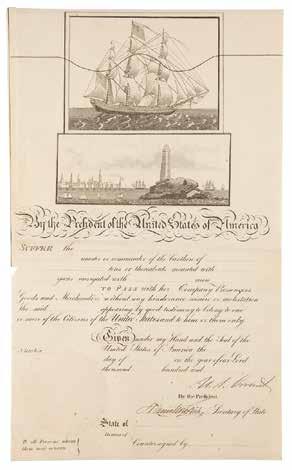 By the President of the United States of America
SUFFER the
master or commander of the burthen of
tons or thereabouts mounted with
guns navigated with men
TO PASS with her Company Passengers
Goods and Merchandize without any hinderance seisure or molestation
the said appearing by good testimony to belong to one
or more of the Citizens of the United States and to him or them only.
Given under my Hand and the Seal of the
United States of America the
day of in the year of our Lord
thousand hundred and
Number
By the President
Secretary of State
State of
Countersigned by